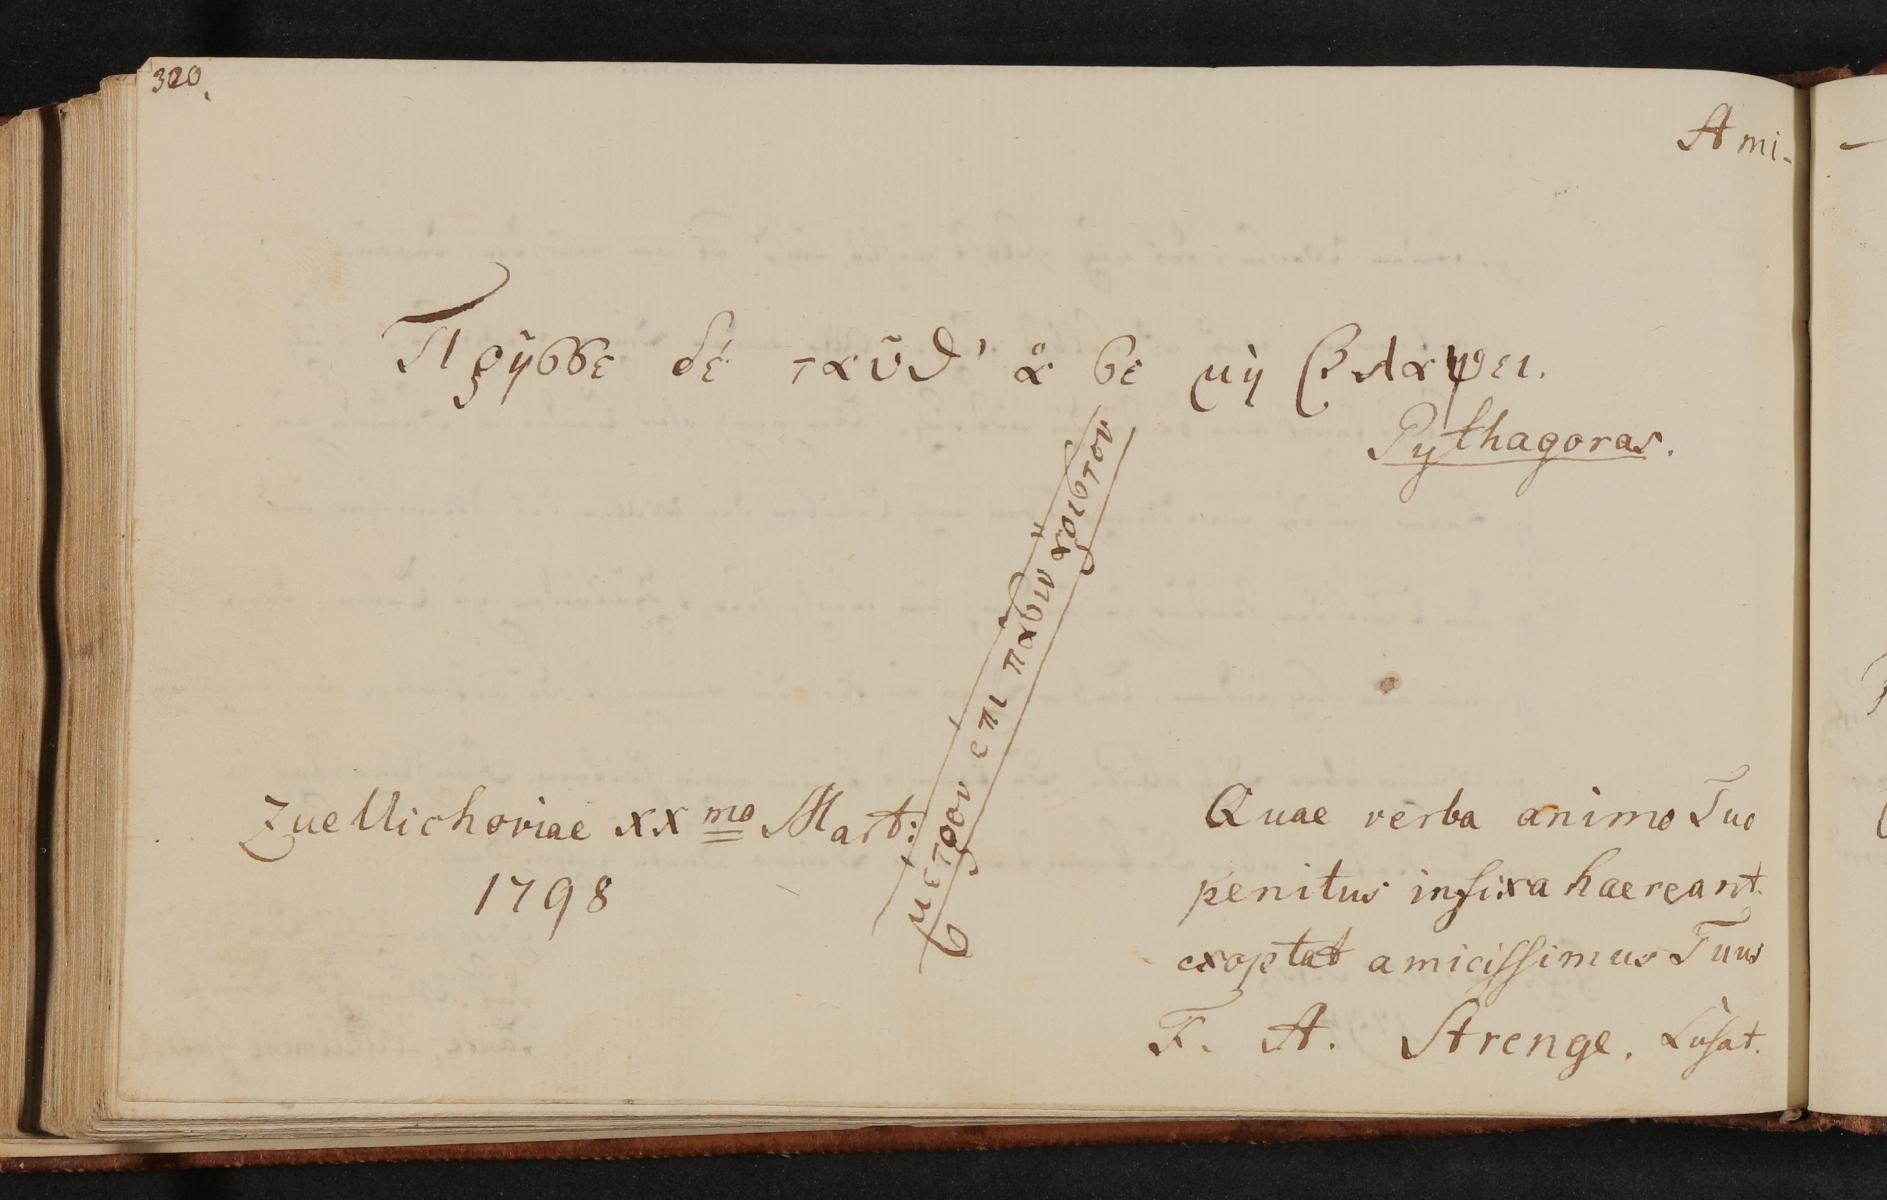 320.
Ami-
Πρῆσσε δέ ταῦθ' ἅ σε μὴ βλαψει.
Pythagoras.
μετρον επι πασιν ἄριστον
Zuellichoviae XX mo Mart:
1798
Quae verba animo Tuo
penitus infixa haereant
exoptat amicissimus Tuus
F. A. Strenge. Lusat.